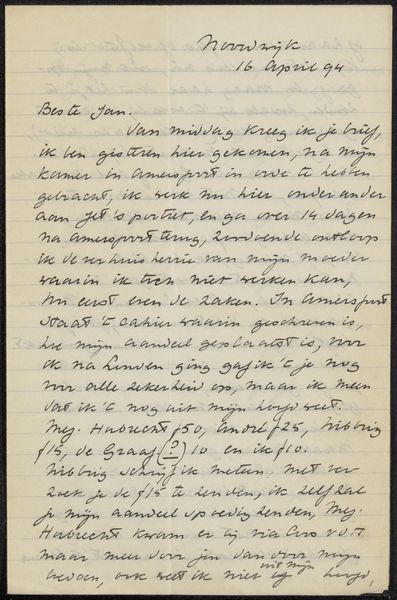 Noordwijk
16 April 94
Beste Jan.
Van middag kreeg ik je brief,
ik ben gisteren hier gekomen, na mijn
kamer in Amersfort in orde te hebben
gebracht, ik werk nu hier onder ander
aan Jet's portret, en ga over 14 dagen
na Amersfort terug, zoodoende ontloop
ik de verhuisherrie van mijn moeder
waarin ik toch niet werken kan,
Nu eerst even de zaken. In Amersfort
staat 't cahier waarin geschreven is,
hoe mijn aandeel geplaatst is, voor
ik na Londen ging gaf ik 't je nog
voor alle zekerheid op, maar ik meen
dat ik 't nog uit mijn hoofd weet.
Mej. Hubrecht f50, André f25, Nibbrig
f15, de Graaf (?) 10 en ik f10.
Nibbrig schrijf ik meteen, met ver-
zoek je de f15 te zenden, ik zelf zal
je mijn aandeel spoedig zenden, Mej.
Hubrecht kwam er bij via
maar meer door jou dan door mijn
ook weet ik niet uit mijn hoofd,